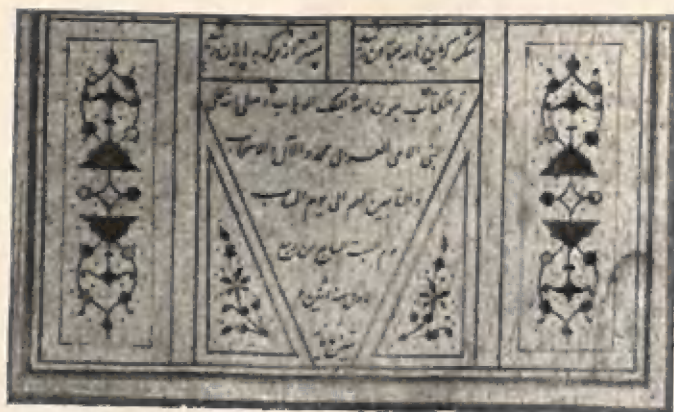 شکر که این نامه بعنوان رسید
پیشتر از مرک به پایان رسید
تم الکتاب بعون الله الملک الوهاب و صلی الله علی
النبی الامی العربی محمد و الآل و الاصحاب
و التابعین لهم الی یوم
یوم سبت من ربیع
الاول سنه اثنین و